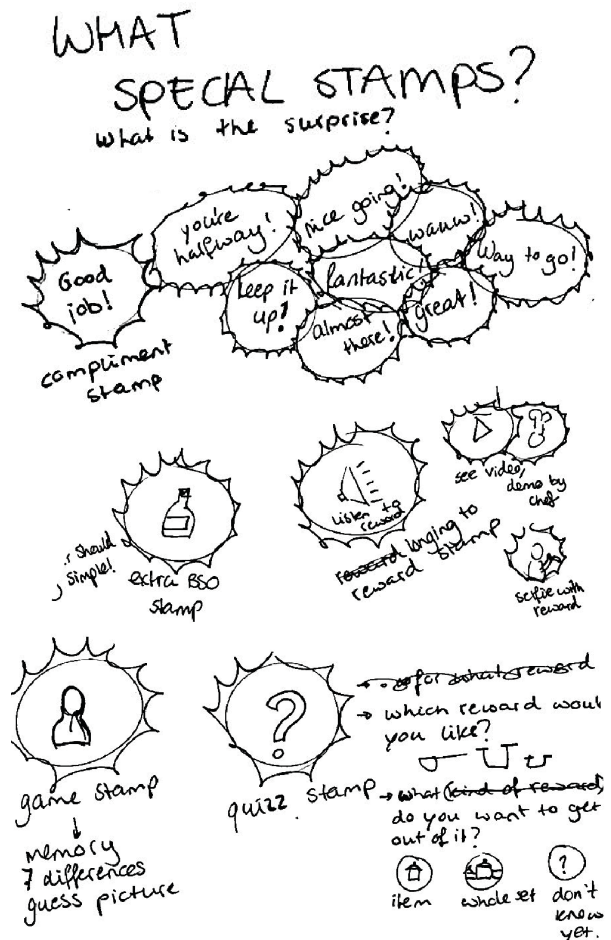 WHAT
SPECIAL STAMPS?
What is the surprise?
Good
job!
you're
halfway!
nice going!
wauw!
Way to go!
keep it
up!
fantastic!
almost
there!
great!
compliment
stamp
should
simple!
extra BSO
stamp
Listen to a
reward
reward longing to
reward stamp
see video,
demo by
chef
selfie with
reward
game stamp
memory
7 differences
guess picture
?
quizz stamp
for what reward
which reward woul
you like?
what kind of reward
do you want to get
out of it?
item
whole set
?
don't
know
yet.